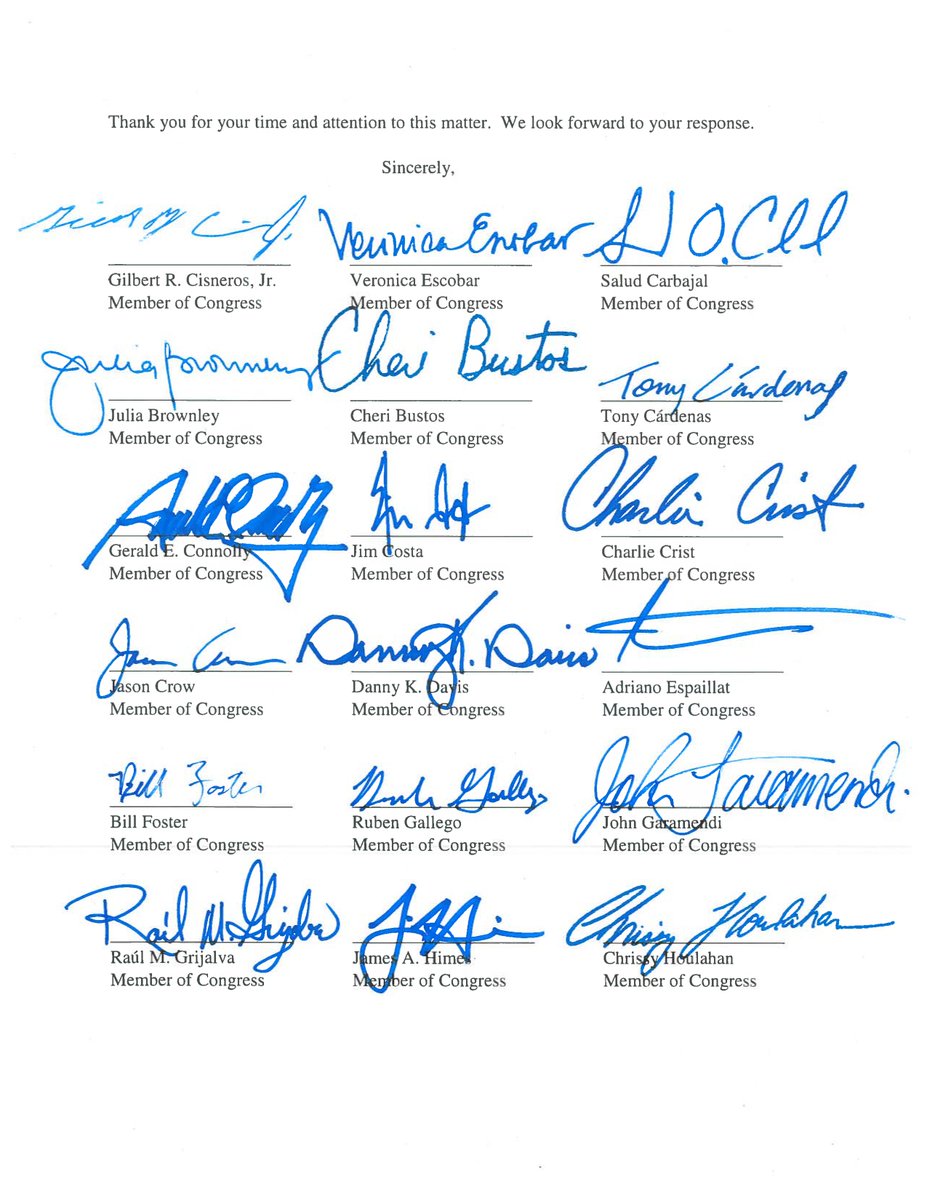 Thank you for your time and attention to this matter. We look forward to your response.
Sincerely,
Veronica Escobar
Gilbert R. Cisneros, Jr. Veronica Escobar Salud Carbajal
Member of Congress Member of Congress Member of Congress
Julia Brownley Cheri Bustos Tony Cárdenas
Julia Brownley Cheri Bustos Tony Cárdenas
Member of Congress Member of Congress Member of Congress
Charlie Crist
Gerald E. Connolly Jim Costa Charlie Crist
Member of Congress Member of Congress Member of Congress
Jason Crow Danny K. Davis
Jason Crow Danny K. Davis Adriano Espaillat
Member of Congress Member of Congress Member of Congress
Bill Foster John Garamendi
Bill Foster Ruben Gallego John Garamendi
Member of Congress Member of Congress Member of Congress
Raúl M. Grijalva Chrissy Houlahan
Raúl M. Grijalva James A. Himes Chrissy Houlahan
Member of Congress Member of Congress Member of Congress